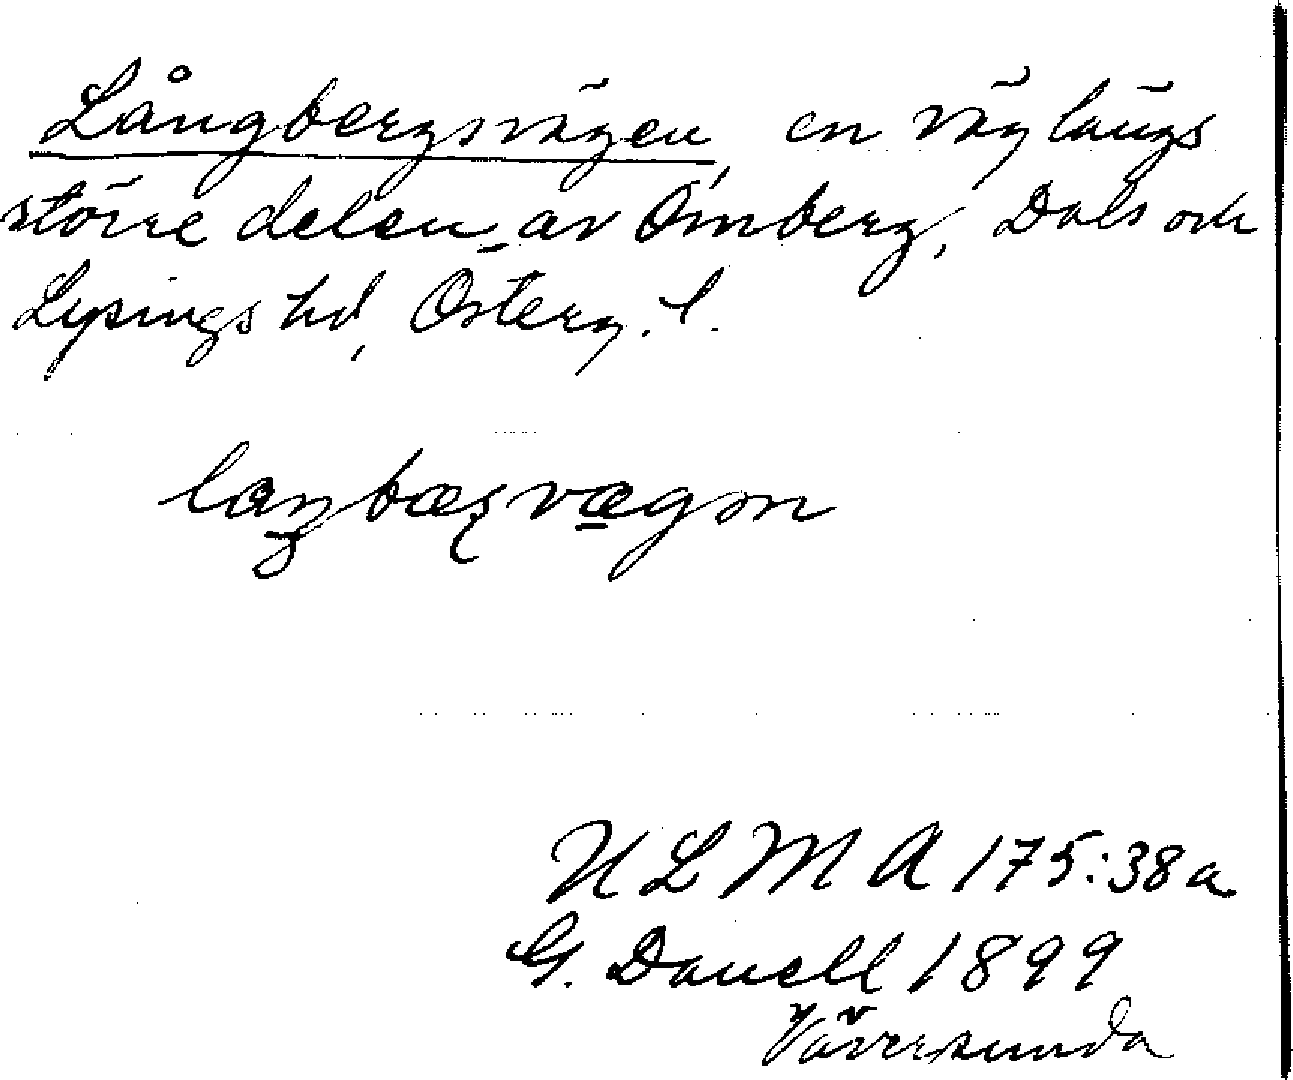 Långbergsvägen, en väg längs
större delen av Omberg, Dals och
Lysings hd, Österg. l.
laŋbæʂvægən
ULMA 175:38a
G. Danell 1899
Väversunda